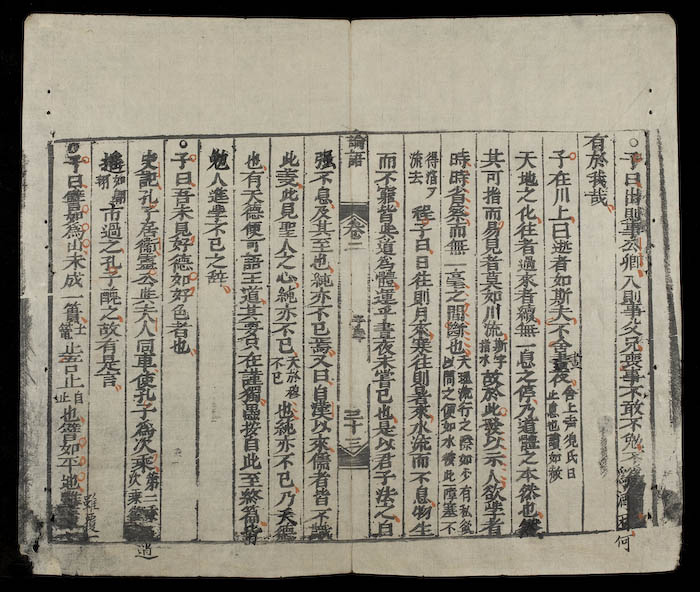 ○子曰出則事公卿入則事父兄喪事不敢不勉不為酒困何
有於我哉
子在川上曰逝者如斯夫不舍晝夜
天地之化往者過來者續無一息之停乃道體之本然也然
其可指而易見者莫如川流斯字指水故於此發以示人欲學者
時時省察而無一毫之間斷也天理流行之際如少有私欲以間之便如水被此障塞不
得滔了流去程子曰日往則月來寒往則暑來水流而不息物生
而不窮皆與道為體運乎晝夜未嘗已也是以君子法之自
論語 卷二 子罕 三十三
强不息及其至也純亦不已焉又曰自漢以來儒者皆不識
此義此見聖人之心純亦不已天於穆不已也純亦不已乃天德
也有天德便可語王道其要只在謹獨愚按自此至終篇皆
勉人進學不已之辞
○子曰吾未見好德如好色者也
史記孔子居衛靈公與夫人同車使孔子為次乘第二乘次乘
搖如翱翔市過之孔子醜之故有是言
○子曰譬如為山未成一簣土篭止吾止自止也譬如平地雖覆一